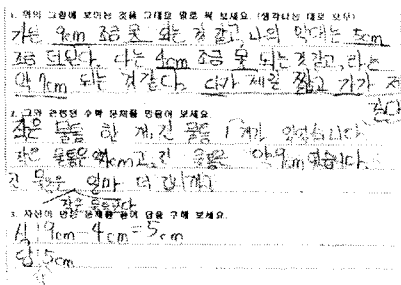 1. 위의 그림에 보이는 것을 그대로 말로 써 보세요. (생각나는 대로 모두)
가는 9cm 조금 못 되는 것 같고, 나의 막대는 5cm
조금 더된다. 다는 4cm 조금 못 되는 것 같고, 라는
약 7cm 되는 것 같다. 다가 제일 짧고 가가 제
길다
2. 그와 관련된 수학 문제를 만들어 보세요.
작은 물통 한 개, 긴 물통 1개가 있었습니다
작은 물통은 약 4cm고, 긴 물통은 약 9cm였습니다.
긴 물통은 얼마 더 깁니까?
작은 물통보다
3. 자신이 만든 문제를 풀어 답을 구해 보세요.
식: 9cm-4cm=5cm
답: 5cm